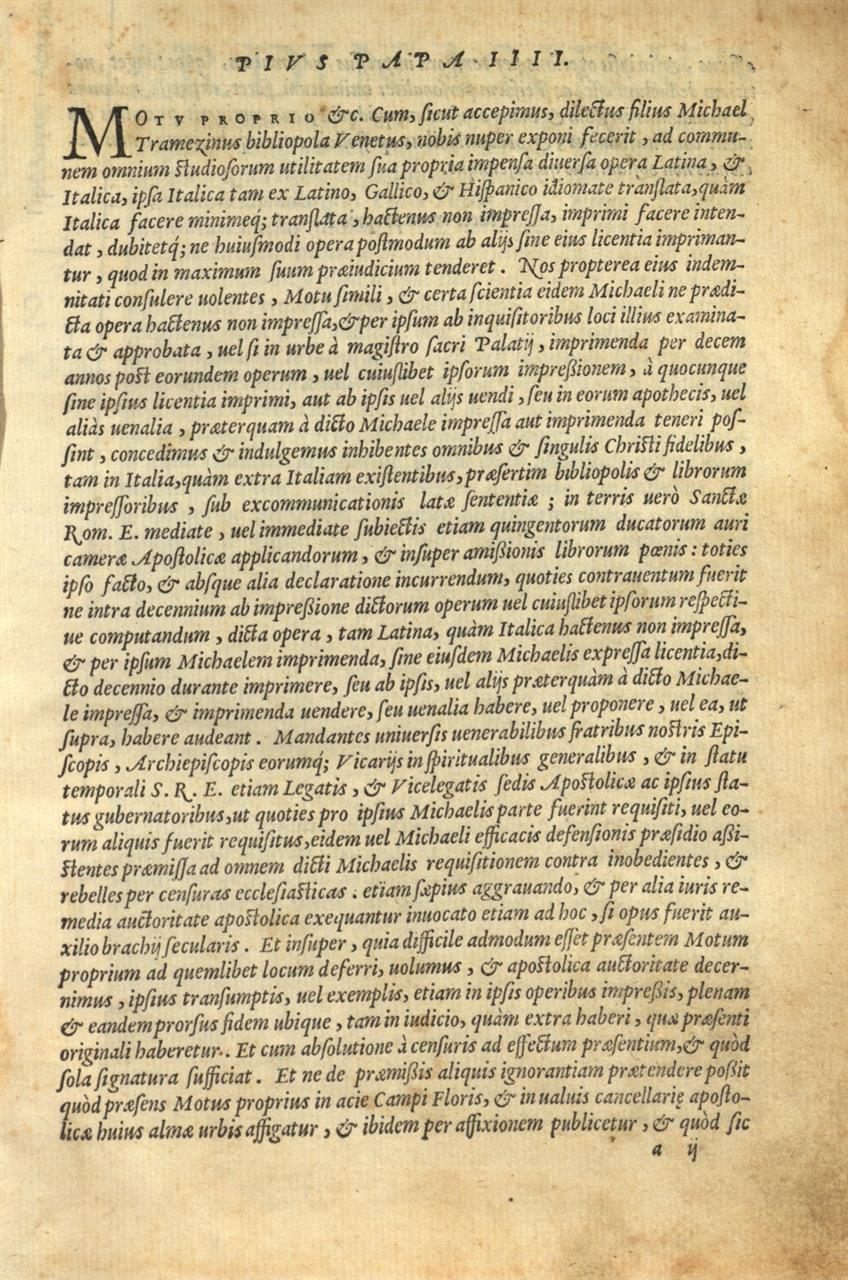 PIVS PAPA IIII.
MOTV PROPRIO &c. Cum, ſicut accepimus, dilectus filius Michael
Tramezinus bibliopola Venetus, nobis nuper exponi fecerit, ad commu-
nem omnium ſtudioſorum utilitatem ſua propria impenſa diuerſa opera Latina, &
Italica, ipſa Italica tam ex Latino, Gallico, & Hiſpanico idiomate tranſlata, quàm
Italica facere minimeq; tranſlata, hactenus non impreſſa, imprimi facere inten-
dat, dubitetq́; ne huiuſmodi opera poſtmodum ab alijs ſine eius licentia impriman-
tur, quod in maximum ſuum præiudicium tenderet. Nos propterea eius indem-
nitati conſulere uolentes, Motu ſimili, & certa ſcientia eidem Michaeli ne prædi-
cta opera hactenus non impreſſa, & per ipſum ab inquiſitoribus loci illius examina-
ta & approbata, uel ſi in urbe à magiſtro ſacri Palatij, imprimenda per decem
annos poſt eorundem operum, uel cuiuſlibet ipſorum impreßionem, à quocunque
ſine ipſius licentia imprimi, aut ab ipſis uel alijs uendi, ſeu in eorum apothecis, uel
aliàs uenalia, præterquam à dicto Michaele impreſſa aut imprimenda teneri poſ-
ſint, concedimus & indulgemus inhibentes omnibus & ſingulis Chriſti fidelibus,
tam in Italia, quàm extra Italiam exiſtentibus, præſertim bibliopolis & librorum
impreſſoribus, ſub excommunicationis latæ ſententiæ; in terris uerò Sanctæ
Rom. E. mediate, uel immediate ſubiectis etiam quingentorum ducatorum auri
cameræ Apoſtolicæ applicandorum, & inſuper amißionis librorum pœnis: toties
ipſo facto, & abſque alia declaratione incurrendum, quoties contrauentum fuerit
ne intra decennium ab impreßione dictorum operum uel cuiuſlibet ipſorum reſpecti-
ue computandum, dicta opera, tam Latina, quàm Italica hactenus non impreſſa,
& per ipſum Michaelem imprimenda, ſine eiuſdem Michaelis expreſſa licentia, di-
cto decennio durante imprimere, ſeu ab ipſis, uel alijs præterquàm à dicto Michae-
le impreſſa, & imprimenda uendere, ſeu uenalia habere, uel proponere, uel ea, ut
ſupra, habere audeant. Mandantes uniuerſis uenerabilibus fratribus noſtris Epi-
ſcopis, Archiepiſcopis eorumq; Vicarijs in ſpiritualibus generalibus, & in ſtatu
temporali S. R. E. etiam Legatis, & Vicelegatis ſedis Apoſtolicæ ac ipſius ſta-
tus gubernatoribus, ut quoties pro ipſius Michaelis parte fuerint requiſiti, uel eo-
rum aliquis fuerit requiſitus, eidem uel Michaeli efficacis defenſionis præſidio aßi-
ſtentes præmiſſa ad omnem dicti Michaelis requiſitionem contra inobedientes, &
rebelles per cenſuras eccleſiaſticas. etiam ſæpius aggrauando, & per alia iuris re-
media auctoritate apoſtolica exequantur inuocato etiam ad hoc, ſi opus fuerit au-
xilio brachij ſecularis. Et inſuper, quia difficile admodum eſſet præſentem Motum
proprium ad quemlibet locum deferri, uolumus, & apoſtolica auctoritate decer-
nimus, ipſius tranſumptis, uel exemplis, etiam in ipſis operibus impreßis, plenam
& eandem prorſus fidem ubique, tam in iudicio, quàm extra haberi, quæ præſenti
originali haberetur. Et cum abſolutione à cenſuris ad effectum præſentium, & quòd
ſola ſignatura ſufficiat. Et ne de præmißis aliquis ignorantiam prætendere poßit
quòd præſens Motus proprius in acie Campi Floris, & in ualuis cancellarię apoſto-
licæ huius almæ urbis affigatur, & ibidem per affixionem publicetur, & quòd ſic
a ij